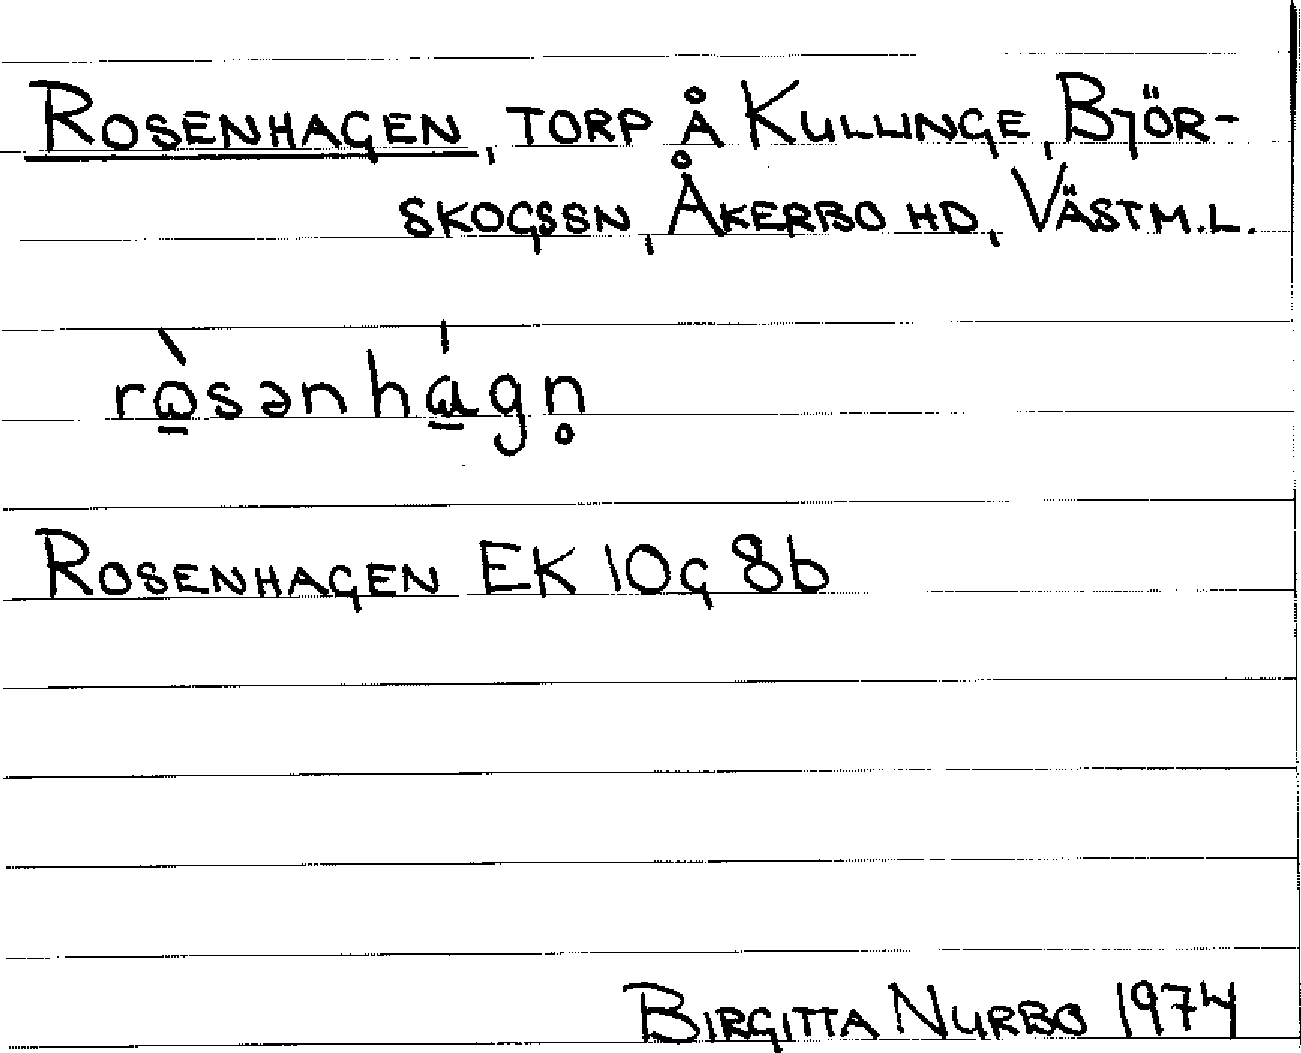 ROSENHAGEN, TORP Å KULLINGE, BJÖR-
SKOGSSN, ÅKERBO HD, VÄSTM.L.
rɷ̠̀sənhɑ̠́gn̥
ROSENHAGEN EK 10G 8b
BIRGITTA NURBO 1974